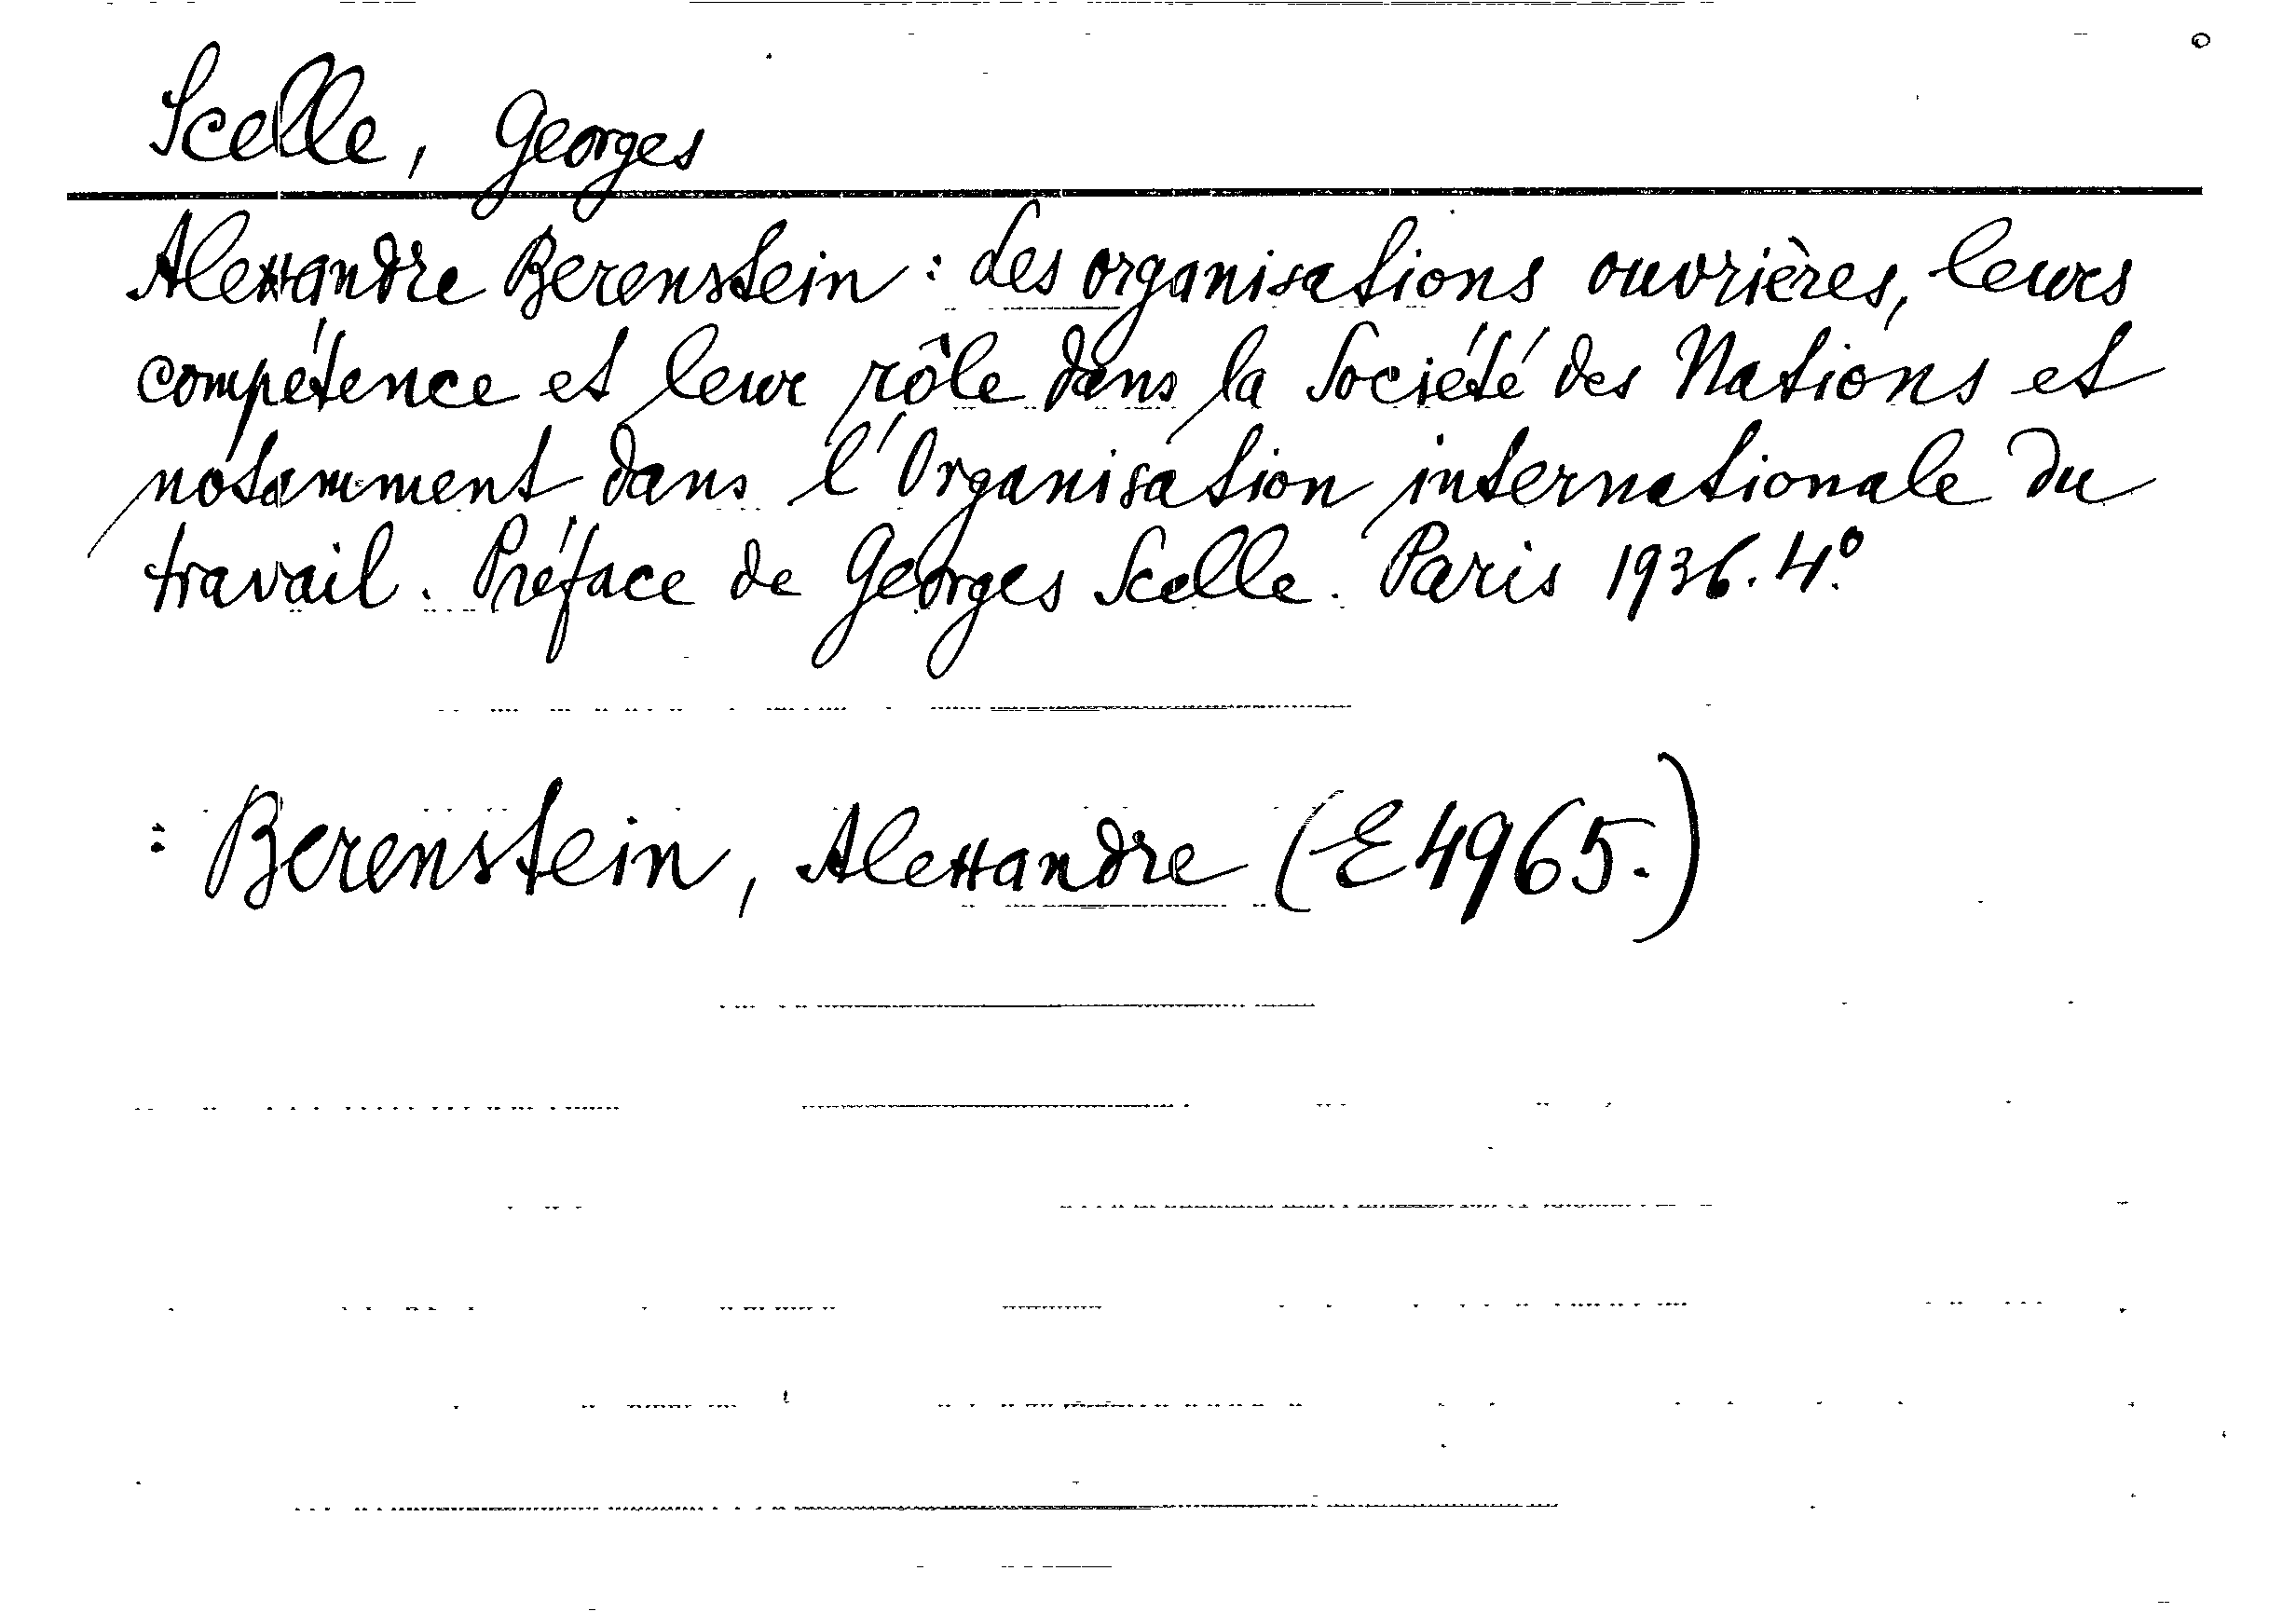 Scelle, Georges
Alexandre Berenstein : Les organisations ouvrières, leurs
compétence et leur rôle dans la Société des Nations et
notamment dans l'Organisation internationale du
travail. Préface de Georges Scelle. Paris 1936. 4º.
: Berenstein, Alexandre (E4965.)